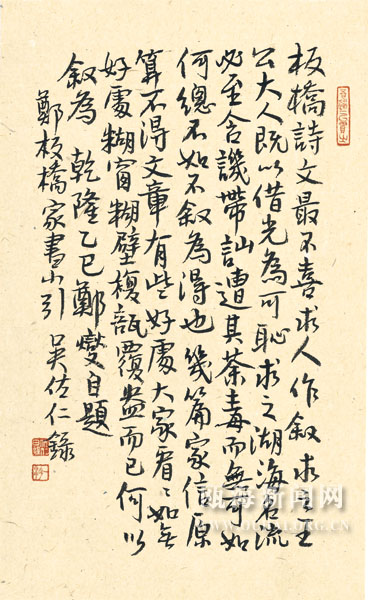 板橋詩文最不喜求人作敘求之王
公大人既以借光為可恥求之湖海名流
必至含譏帶訕遭其荼毒而無可如
何總不如不敘為得也幾篇家信原
算不得文章有些好處大家看〻如無
好處糊窗糊壁複瓿覆盎而已何以
敘為 乾隆乙巳鄭燮自題
鄭板橋家書小引 吳佐仁錄
瓯海新闻网